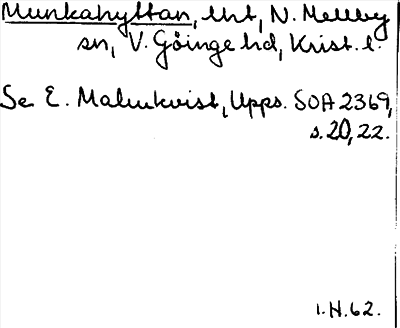 Munkahyttan, lht, N. Mellby
sn, V. Göinge hd, Krist. l.
Se E. Malmkvist, Upps. SOA 2369,
s. 20, 22.
1.H.62.